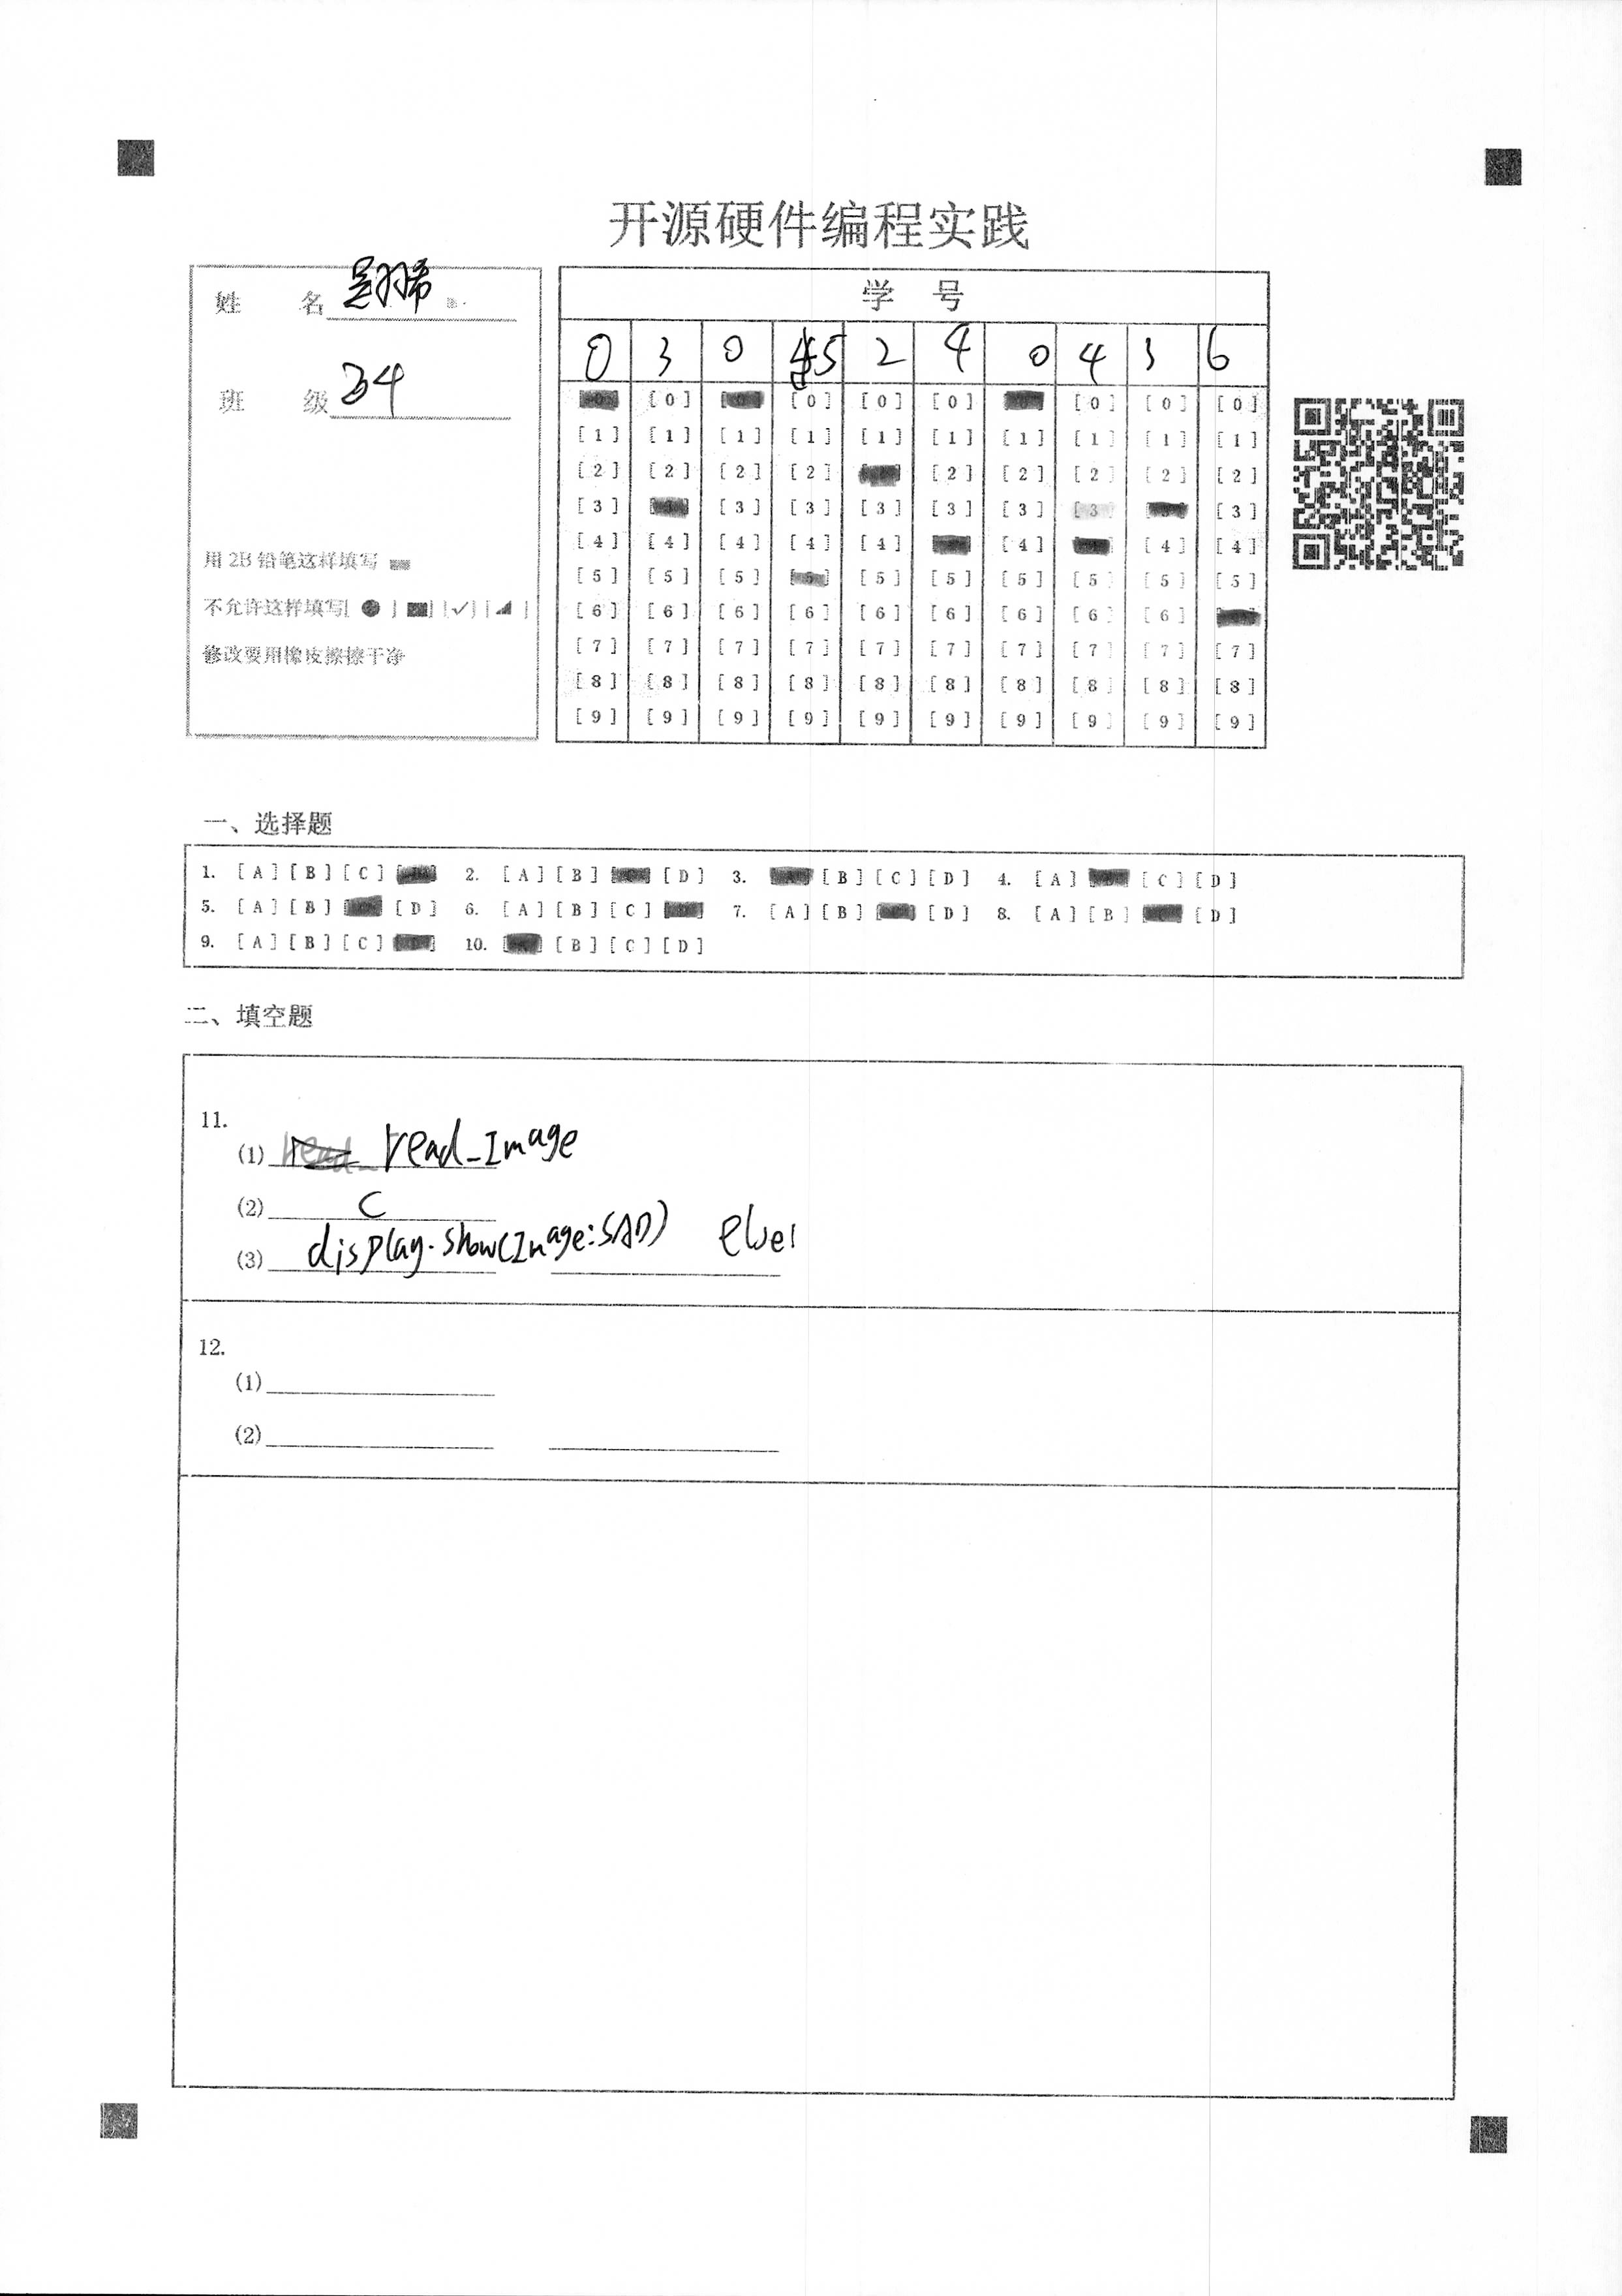 开源硬件编程实践
姓 名
班 级 34
用 2B 铅笔这样填写
不允许这样填写[ ● ] [■] [✓] [◢ ]
修改要用橡皮擦擦干净
学 号
0 3 0 5 2 4 0 4 3 6
[0] [0] [0] [0] [0] [0] [0]
[1] [1] [1] [1] [1] [1] [1] [1] [1] [1]
[2] [2] [2] [2] [2] [2] [2] [2] [2]
[3] [3] [3] [3] [3] [3] [3] [3]
[4] [4] [4] [4] [4] [4] [4] [4]
[5] [5] [5] [5] [5] [5] [5] [5] [5]
[6] [6] [6] [6] [6] [6] [6] [6] [6]
[7] [7] [7] [7] [7] [7] [7] [7] [7] [7]
[8] [8] [8] [8] [8] [8] [8] [8] [8] [8]
[9] [9] [9] [9] [9] [9] [9] [9] [9] [9]
一、选择题
1. [A] [B] [C] 2. [A] [B] [D] 3. [B] [C] [D] 4. [A] [C] [D]
5. [A] [B] [D] 6. [A] [B] [C] 7. [A] [B] [D] 8. [A] [B] [D]
9. [A] [B] [C] 10. [B] [C] [D]
二、填空题
11.
(1) read_Image
(2) C
(3) display.show(Image:SAD)
12.
(1)
(2)